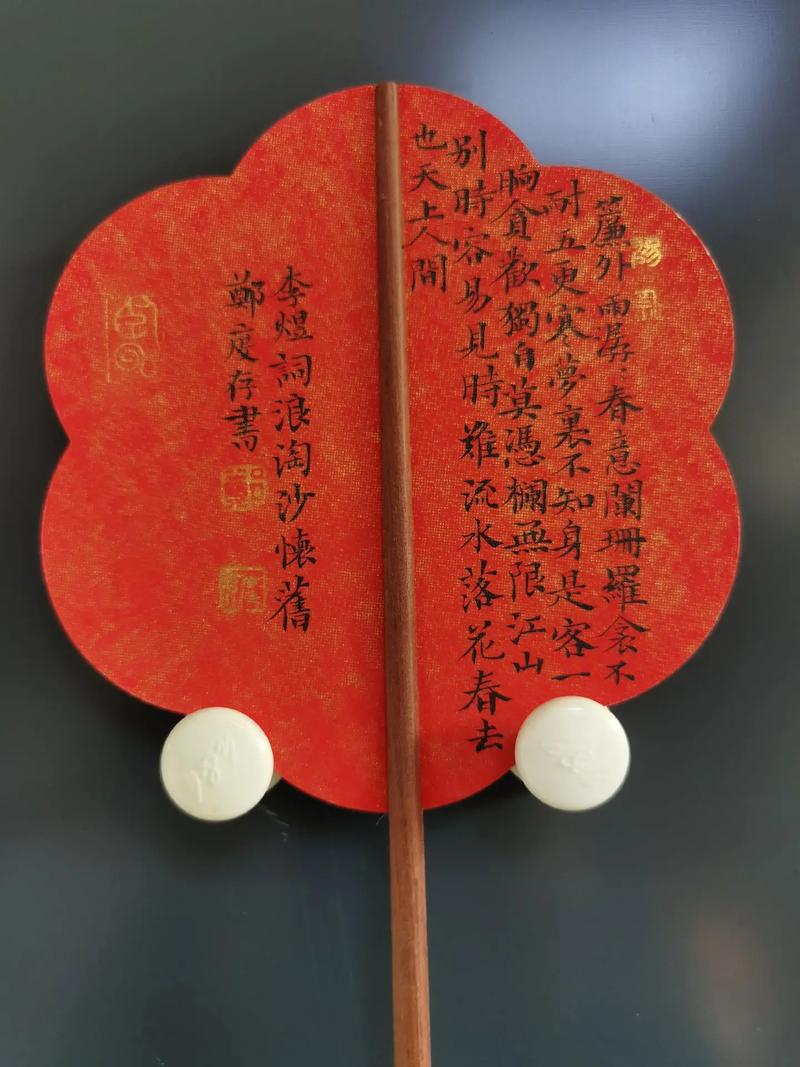 簾外雨潺々春意闌珊羅衾不
耐五更寒夢裏不知身是客一
晌貪歡獨自莫憑欄無限江山
別時容易見時難流水落花春去
也天上人間
李煜詞浪淘沙懷舊
鄭存書